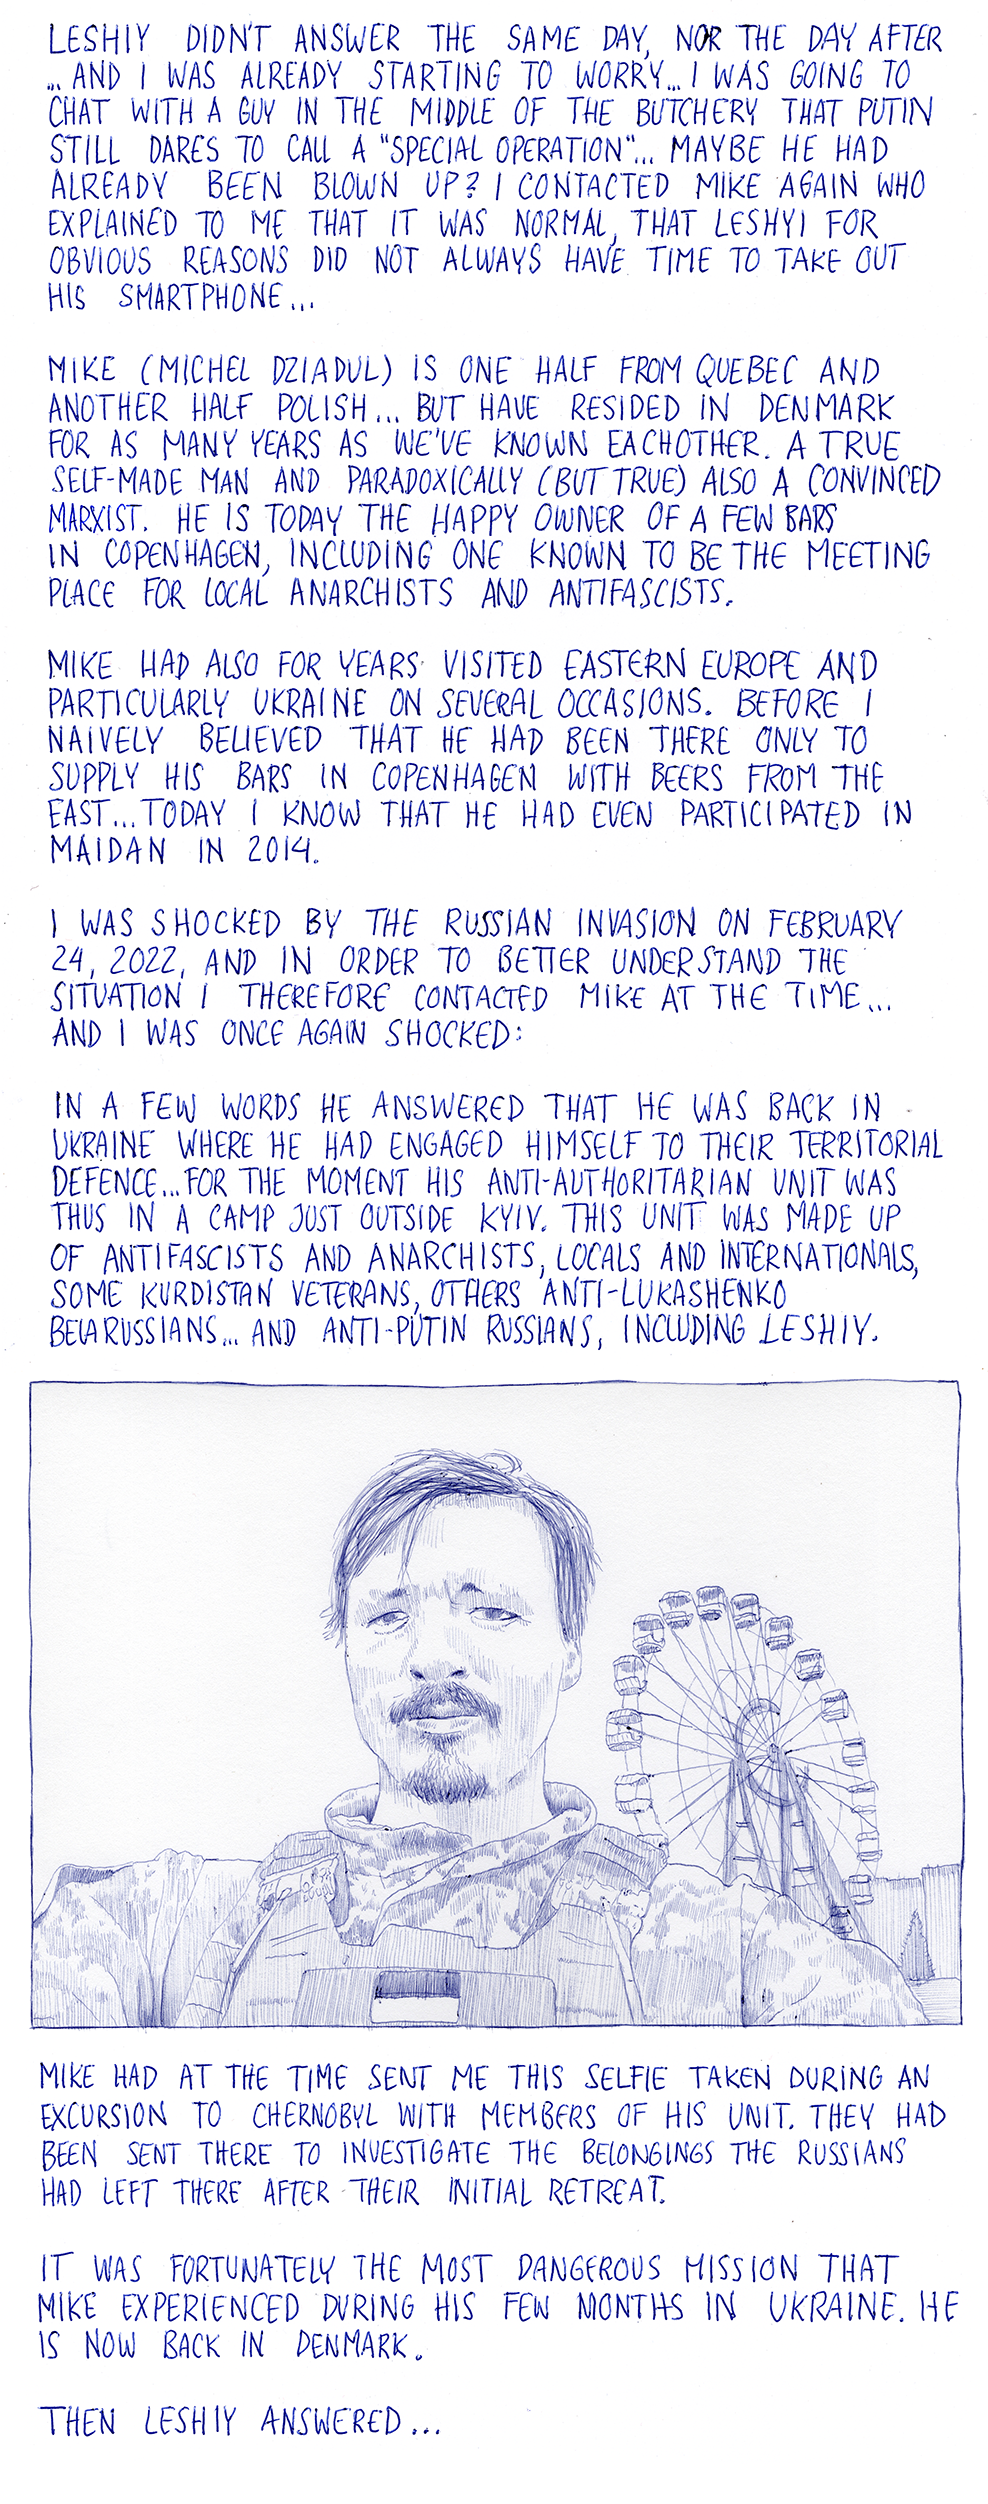 LESHIY DIDN'T ANSWER THE SAME DAY, NOR THE DAY AFTER
... AND I WAS ALREADY STARTING TO WORRY... I WAS GOING TO
CHAT WITH A GUY IN THE MIDDLE OF THE BUTCHERY THAT PUTIN
STILL DARES TO CALL A "SPECIAL OPERATION"... MAYBE HE HAD
ALREADY BEEN BLOWN UP? I CONTACTED MIKE AGAIN WHO
EXPLAINED TO ME THAT IT WAS NORMAL, THAT LESHYI FOR
OBVIOUS REASONS DID NOT ALWAYS HAVE TIME TO TAKE OUT
HIS SMARTPHONE...
MIKE (MICHEL DZIADUL) IS ONE HALF FROM QUEBEC AND
ANOTHER HALF POLISH... BUT HAVE RESIDED IN DENMARK
FOR AS MANY YEARS AS WE'VE KNOWN EACHOTHER. A TRUE
SELF-MADE MAN AND PARADOXICALLY (BUT TRUE) ALSO A CONVINCED
MARXIST. HE IS TODAY THE HAPPY OWNER OF A FEW BARS
IN COPENHAGEN, INCLUDING ONE KNOWN TO BE THE MEETING
PLACE FOR LOCAL ANARCHISTS AND ANTIFASCISTS.
MIKE HAD ALSO FOR YEARS VISITED EASTERN EUROPE AND
PARTICULARLY UKRAINE ON SEVERAL OCCASIONS. BEFORE I
NAIVELY BELIEVED THAT HE HAD BEEN THERE ONLY TO
SUPPLY HIS BARS IN COPENHAGEN WITH BEERS FROM THE
EAST... TODAY I KNOW THAT HE HAD EVEN PARTICIPATED IN
MAIDAN IN 2014.
I WAS SHOCKED BY THE RUSSIAN INVASION ON FEBRUARY
24, 2022, AND IN ORDER TO BETTER UNDERSTAND THE
SITUATION I THEREFORE CONTACTED MIKE AT THE TIME...
AND I WAS ONCE AGAIN SHOCKED:
IN A FEW WORDS HE ANSWERED THAT HE WAS BACK IN
UKRAINE WHERE HE HAD ENGAGED HIMSELF TO THEIR TERRITORIAL
DEFENCE... FOR THE MOMENT HIS ANTI-AUTHORITARIAN UNIT WAS
THUS IN A CAMP JUST OUTSIDE KYIV. THIS UNIT WAS MADE UP
OF ANTIFASCISTS AND ANARCHISTS, LOCALS AND INTERNATIONALS,
SOME KURDISTAN VETERANS, OTHERS ANTI-LUKASHENKO
BELARUSSIANS... AND ANTI-PUTIN RUSSIANS, INCLUDING LESHIY.
MIKE HAD AT THE TIME SENT ME THIS SELFIE TAKEN DURING AN
EXCURSION TO CHERNOBYL WITH MEMBERS OF HIS UNIT. THEY HAD
BEEN SENT THERE TO INVESTIGATE THE BELONGINGS THE RUSSIANS
HAD LEFT THERE AFTER THEIR INITIAL RETREAT.
IT WAS FORTUNATELY THE MOST DANGEROUS MISSION THAT
MIKE EXPERIENCED DURING HIS FEW MONTHS IN UKRAINE. HE
IS NOW BACK IN DENMARK.
THEN LESHIY ANSWERED...